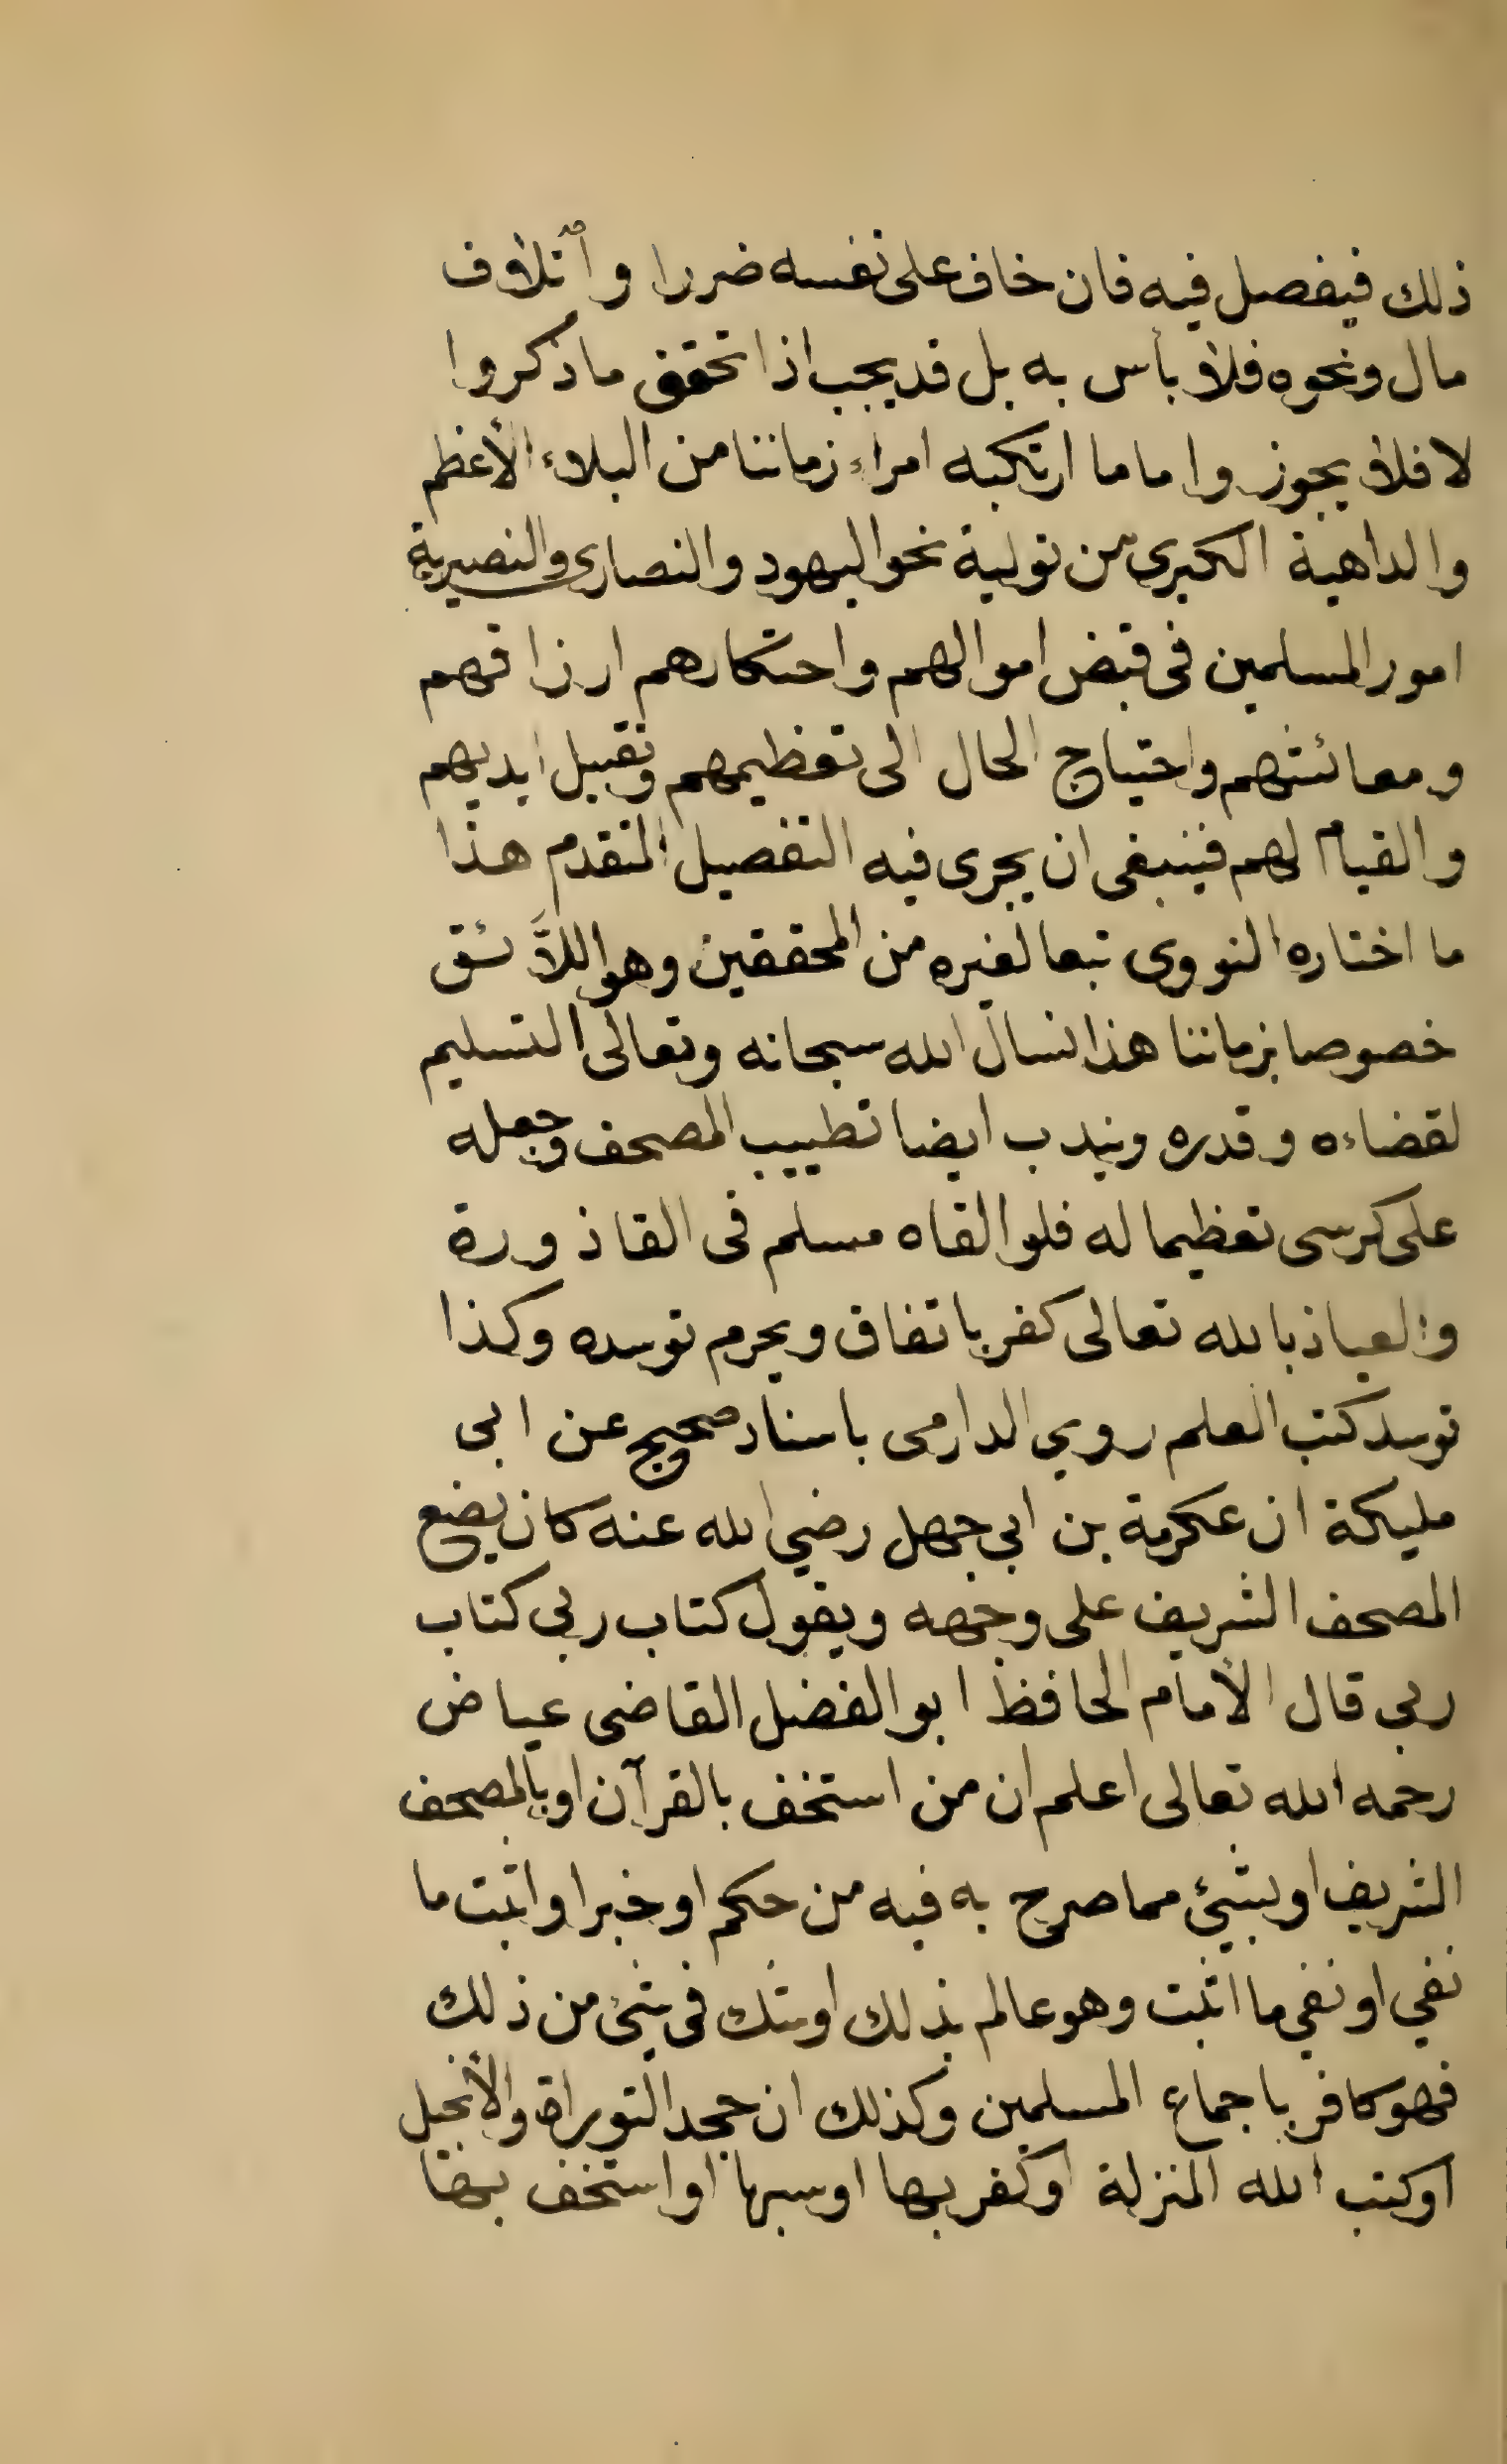 ذلك فيفصل فيه فان خاف على نفسه ضررا و اتلاف
مال ونحوه فلا بأس به بل قد يجب اذا تحقق ما ذكروا
لا فلا يجوز واما ما ارتكبه امراء زماننا من البلاء الأعظم
والداهية الكبرى من تولية نحو اليهود والنصارى والنصيرية
امور المسلمين فى قبض اموالهم واحتكارهم ارزاقهم
ومعائشهم واحتياج الحال الى تعظيمهم وتقبيل ايديهم
والقيام لهم فينبغى ان يجرى فيه التفصيل المتقدم هذا
ما اختاره النووى تبعا لغيره من المحققين وهو اللآئق
خصوصا بزماننا هذا نسال الله سبحانه وتعالى التسليم
لقضاءه وقدره ويندب ايضا تطييب المصحف وجعله
على كرسى تعظيما له فلو القاه مسلم فى القاذورة
والعياذ بالله تعالى كفر باتفاق ويحرم توسده وكذا
توسد كتب العلم روي الدارمى باسناد صحيح عن ابى
مليكة ان عكرمة بن ابي جهل رضي الله عنه كان يضع
المصحف الشريف على وجهه ويقول كتاب ربي كتاب
ربى قال الأمام الحافظ ابو الفضل القاضى عياض
رحمه الله تعالى اعلم ان من استخف بالقرآن او بالمصحف
الشريف او بشيئ مما صرح به فيه من حكم او خبر او اثبت ما
نفي او نفي ما اثبت وهو عالم بذلك او شك فى شيئ من ذلك
فهو كافر باجماع المسلمين وكذلك ان جحد التوراة والأنجيل
او كتب الله المنزلة او كفر بها او سبها او استخف بها